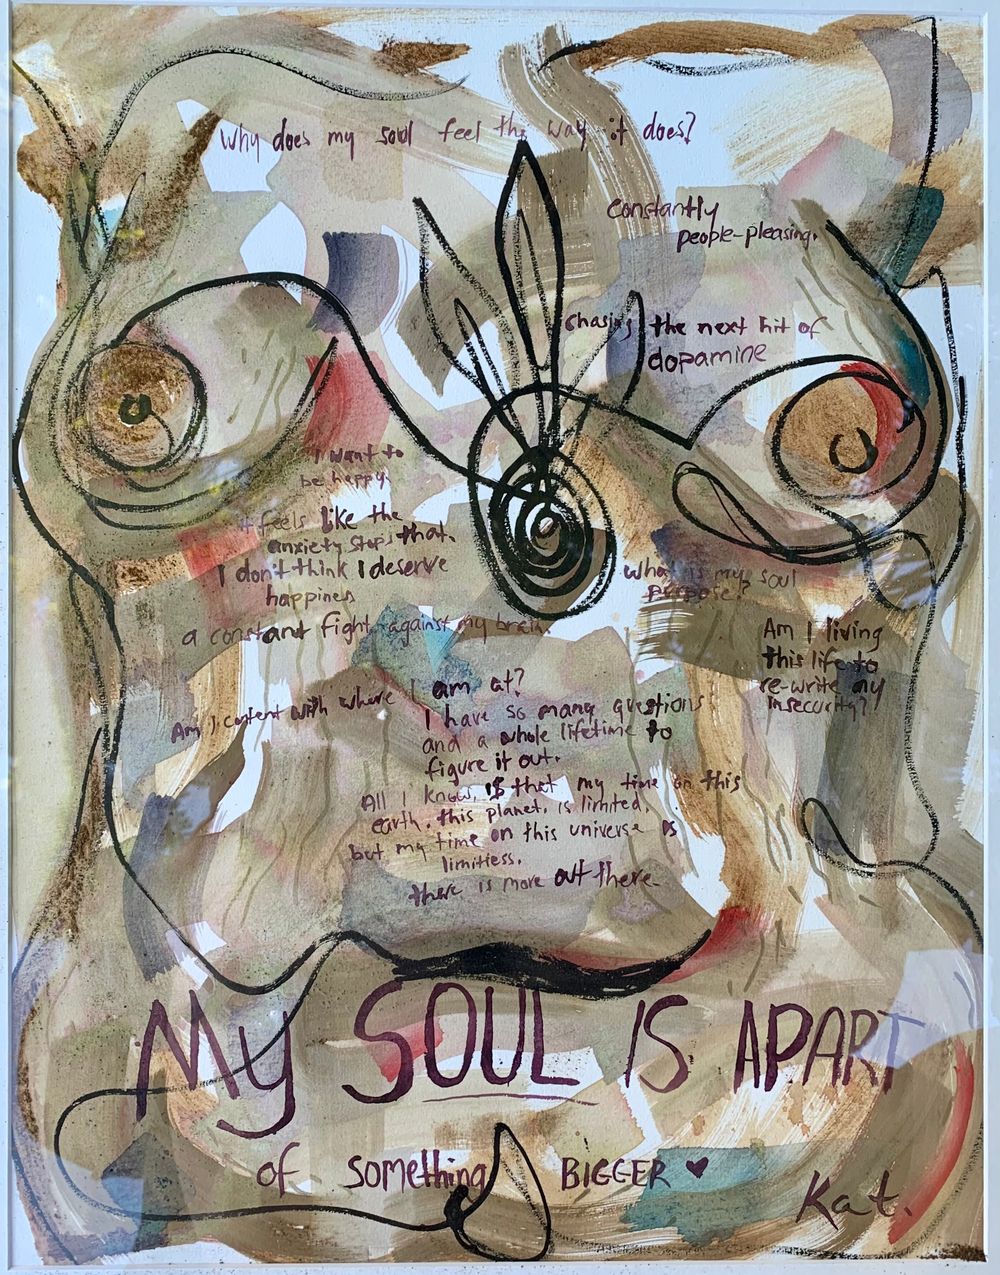 Why does my soul feel the way it does?
constantly
people-pleasing.
chasing the next hit of
dopamine
I want to
be happy.
it feels like the
anxiety stops that.
I don't think I deserve
happiness
a constant fight against my brain.
What is my soul
purpose?
Am I living
this life to
re-write my
insecurity?
Am I content with where I am at?
I have so many questions
and a whole lifetime to
figure it out.
All I know, is that my time on this
earth, this planet, is limited,
but my time on this universe is
limitless.
there is more out there.
My SOUL IS APART
of something BIGGER ♥
Kat.